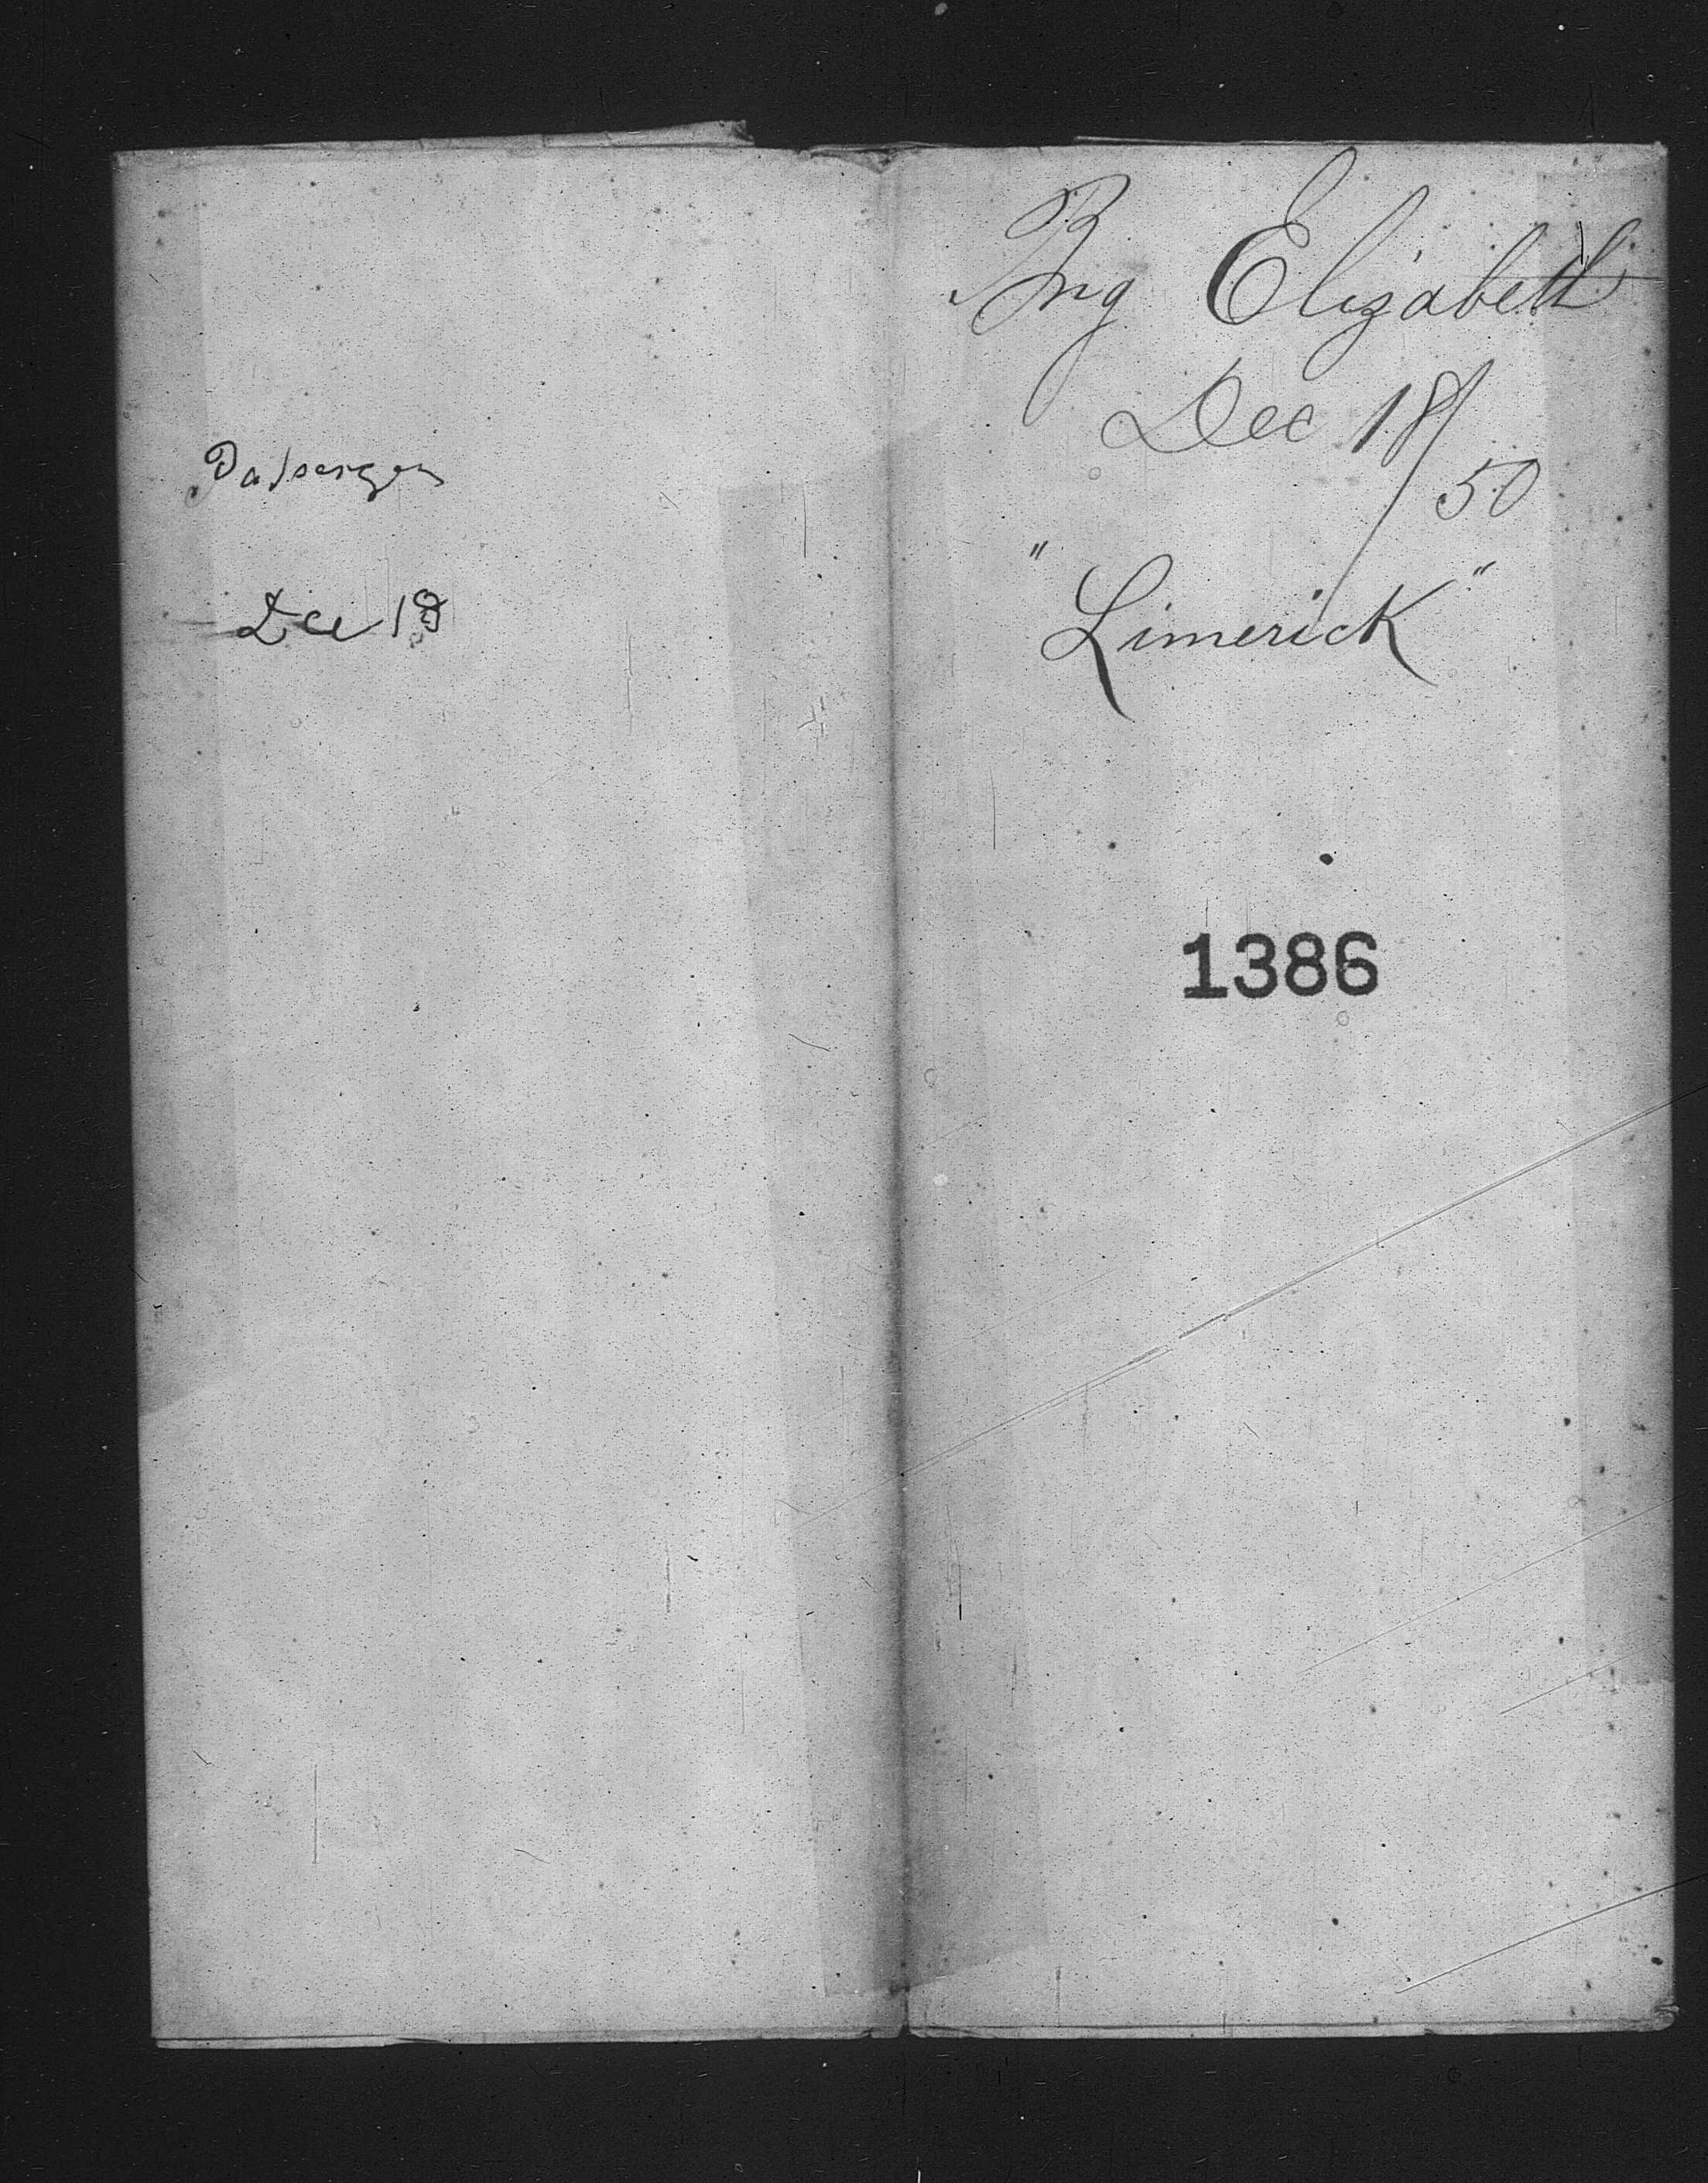 Passenger
Dec 18
Brig Elizabeth
Dec 18/
50
"Limerick"
1386